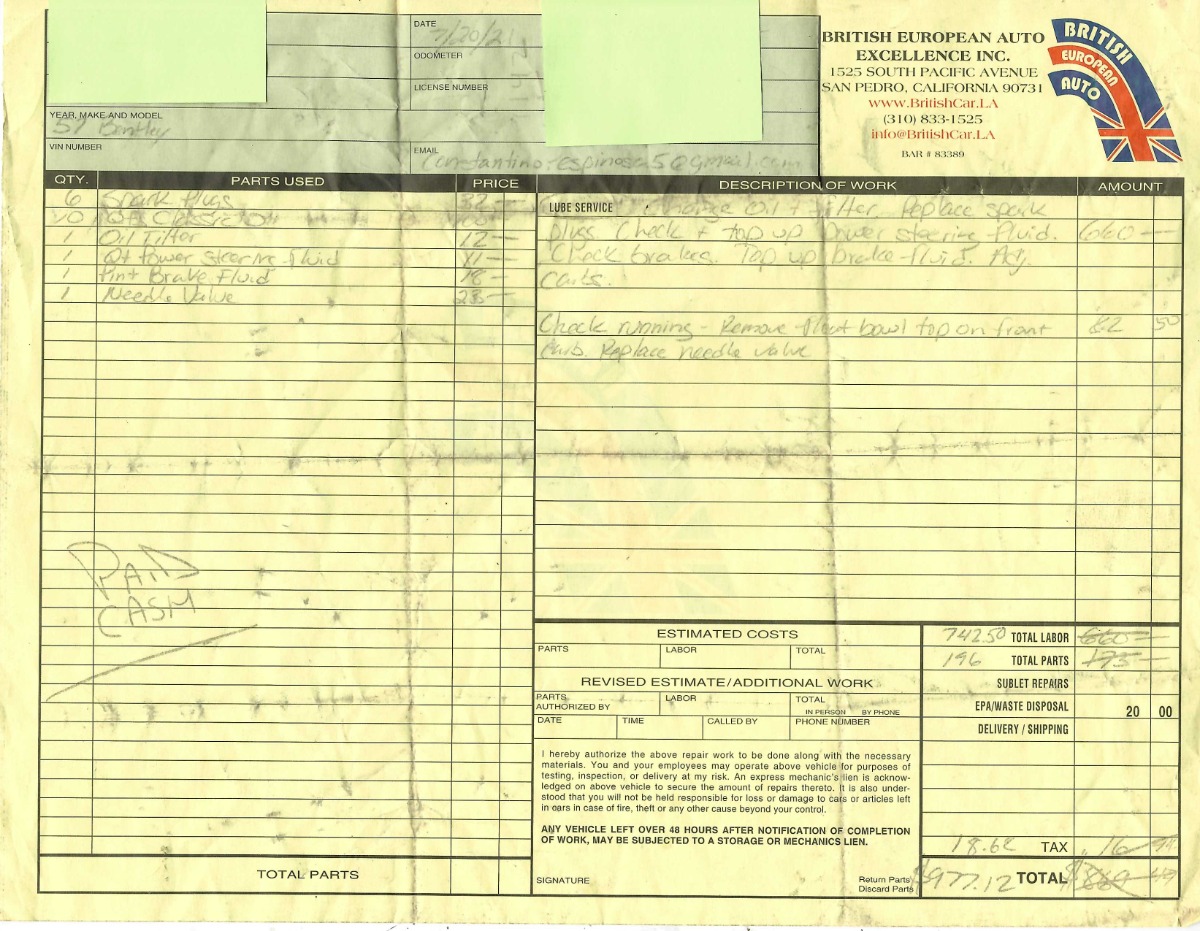 DATE
7/20/21
ODOMETER
LICENSE NUMBER
YEAR, MAKE AND MODEL
57 Bentley
VIN NUMBER
EMAIL
constantino.espinosa5@gmail.com
BRITISH EUROPEAN AUTO
EXCELLENCE INC.
1525 SOUTH PACIFIC AVENUE
SAN PEDRO, CALIFORNIA 90731
www.BritishCar.LA
(310) 833-1525
info@BritishCar.LA
BAR # 83389
BRITISH
EUROPEAN
AUTO
QTY. PARTS USED PRICE
6 Spark Plugs 32—
10 Qt Classic Oil
1 Oil Filter 12—
1 Qt Power steering fluid 11—
1 Pint Brake Fluid 18—
1 Needle Valve 23—
PAID
CASH
TOTAL PARTS
DESCRIPTION OF WORK AMOUNT
LUBE SERVICE Change Oil + Filter. Replace spark
plugs. Check + top up power steering fluid. 660—
Check brakes. Top up brake fluid. Adj.
carbs.
Check running - Remove float bowl top on front 82 50
carb. Replace needle valve
ESTIMATED COSTS
PARTS LABOR TOTAL
REVISED ESTIMATE/ADDITIONAL WORK
PARTS LABOR TOTAL
AUTHORIZED BY IN PERSON BY PHONE
DATE TIME CALLED BY PHONE NUMBER
I hereby authorize the above repair work to be done along with the necessary
materials. You and your employees may operate above vehicle for purposes of
testing, inspection, or delivery at my risk. An express mechanic's lien is acknow-
ledged on above vehicle to secure the amount of repairs thereto. It is also under-
stood that you will not be held responsible for loss or damage to cars or articles left
in cars in case of fire, theft or any other cause beyond your control.
ANY VEHICLE LEFT OVER 48 HOURS AFTER NOTIFICATION OF COMPLETION
OF WORK, MAY BE SUBJECTED TO A STORAGE OR MECHANICS LIEN.
SIGNATURE
Return Parts
Discard Parts
742.50 TOTAL LABOR 660—
196 TOTAL PARTS 173—
SUBLET REPAIRS
EPA/WASTE DISPOSAL 20 00
DELIVERY / SHIPPING
18.62 TAX 16 44
$977.12 TOTAL $869 44